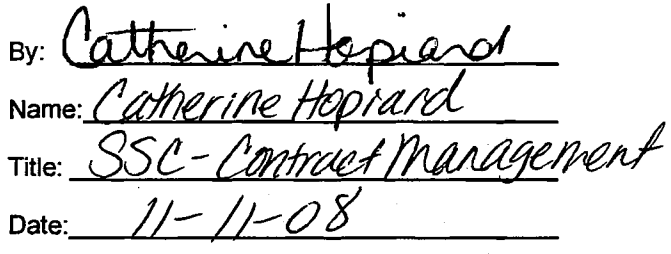 By: Catherine Hopiard
Name: Catherine Hopiard
Title: SSC-Contract Management
Date: 11-11-08